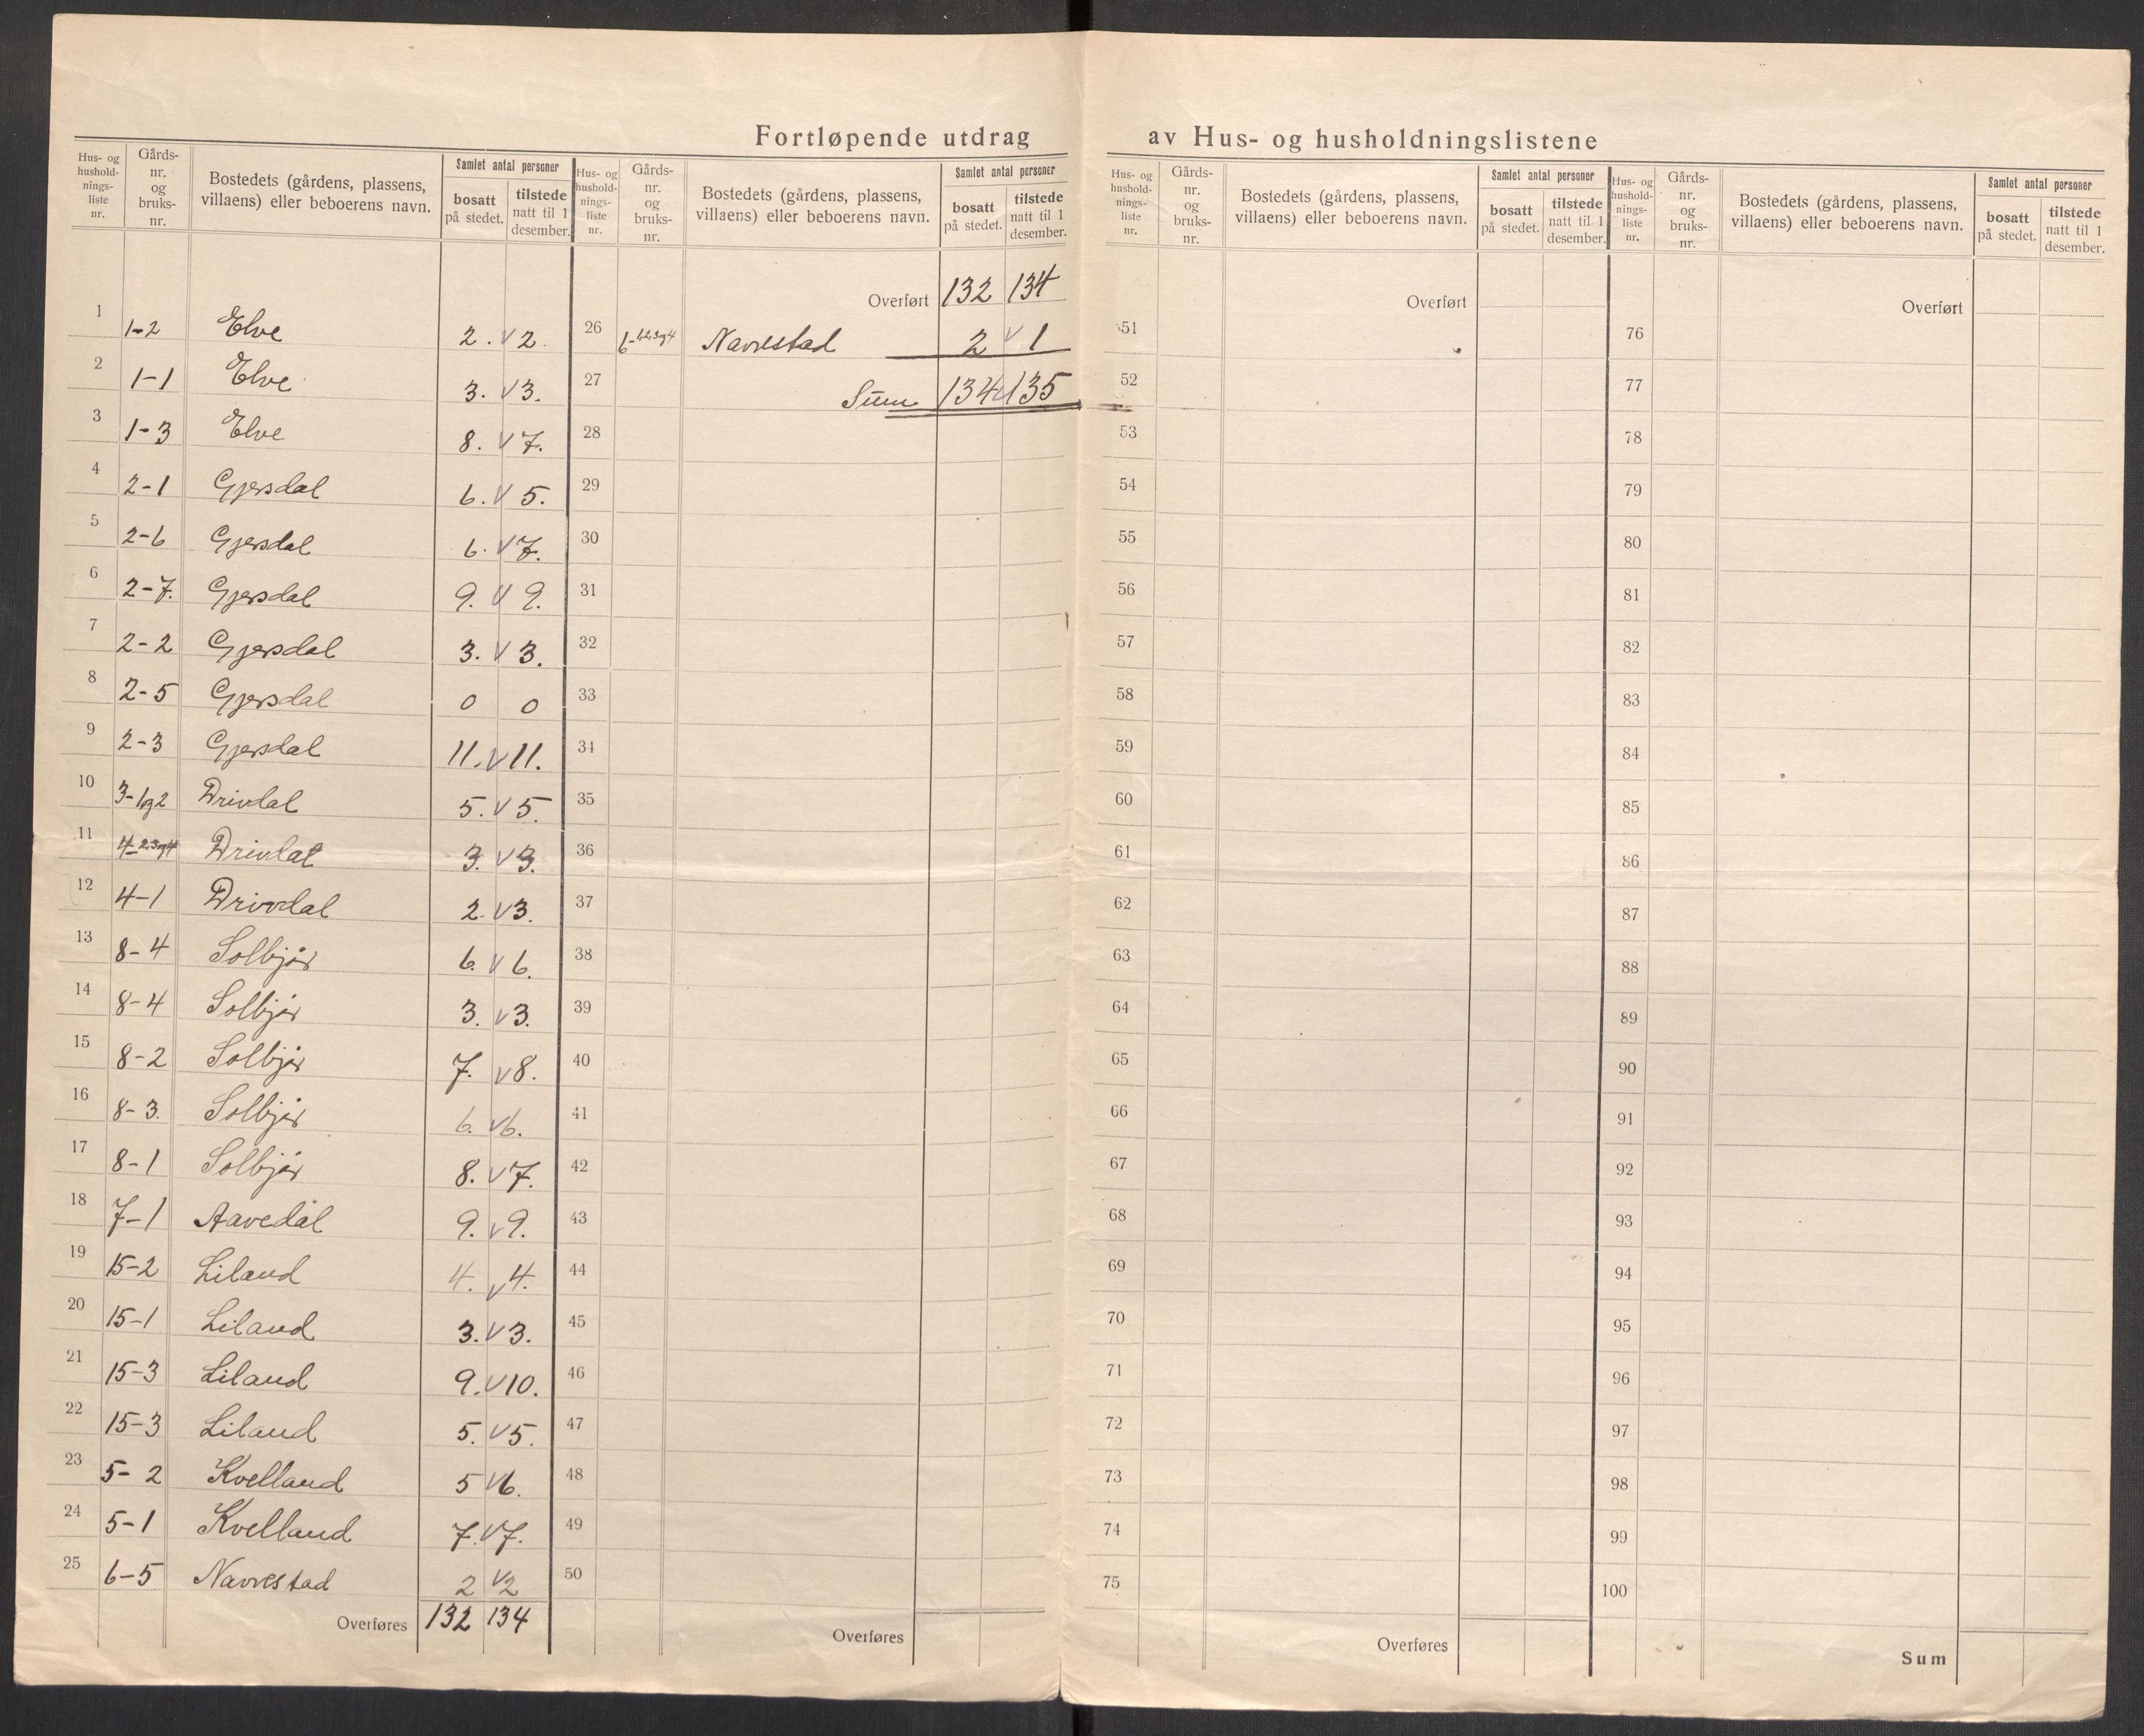 Fortløpende utdrag av Hus- og husholdningslistene
Hus- og hushold-nings-liste nr. Gårds-nr. og bruks-nr. Bostedets (gårdens, plassens, villaens) eller beboerens navn. Samlet antal personer bosatt på stedet. tilstede natt til 1 desember.
1 1-2 Elve 2. V 2.
2 1-1 Elve 3. V 3.
3 1-3 Elve 8. V 7.
4 2-1 Gjersdal 6. V 5.
5 2-6 Gjersdal 6. V 7.
6 2-7. Gjersdal 9. V 9.
7 2-2 Gjersdal 3. V 3.
8 2-5 Gjersdal 0 0
9 2-3 Gjersdal 11. V 11.
10 3-1og2 Drivdal 5. V 5.
11 4-2,3og4 Drivdal 3. V 3.
12 4-1 Drivdal 2. V 3.
13 8-4 Solbjør 6. V 6.
14 8-4 Solbjør 3. V 3.
15 8-2 Solbjør 7. V 8.
16 8-3. Solbjør 6. V 6.
17 8-1 Solbjør 8. V 7.
18 7-1 Aavedal 9. V 9.
19 15-2 Liland 4. V 4.
20 15-1 Liland 3. V 3.
21 15-3 Liland 9. V 10.
22 15-3 Liland 5. V 5.
23 5-2 Kvelland 5 V 6.
24 5-1 Kvelland 7. V 7.
25 6-5 Navrestad 2 V 2
Overføres 132 134
Hus- og hushold-nings-liste nr. Gårds-nr. og bruks-nr. Bostedets (gårdens, plassens, villaens) eller beboerens navn. Samlet antal personer bosatt på stedet. tilstede natt til 1 desember.
Overført 132 134
26 6-1,2,3og4 Navrestad 2 V 1
27 Sum 134 V 135
28
29
30
31
32
33
34
35
36
37
38
39
40
41
42
43
44
45
46
47
48
49
50
Overføres
Hus- og hushold-nings-liste nr. Gårds-nr. og bruks-nr. Bostedets (gårdens, plassens, villaens) eller beboerens navn. Samlet antal personer bosatt på stedet. tilstede natt til 1 desember.
Overført
51
52
53
54
55
56
57
58
59
60
61
62
63
64
65
66
67
68
69
70
71
72
73
74
75
Overføres
Hus- og hushold-nings-liste nr. Gårds-nr. og bruks-nr. Bostedets (gårdens, plassens, villaens) eller beboerens navn. Samlet antal personer bosatt på stedet. tilstede natt til 1 desember.
Overført
76
77
78
79
80
81
82
83
84
85
86
87
88
89
90
91
92
93
94
95
96
97
98
99
100
Sum